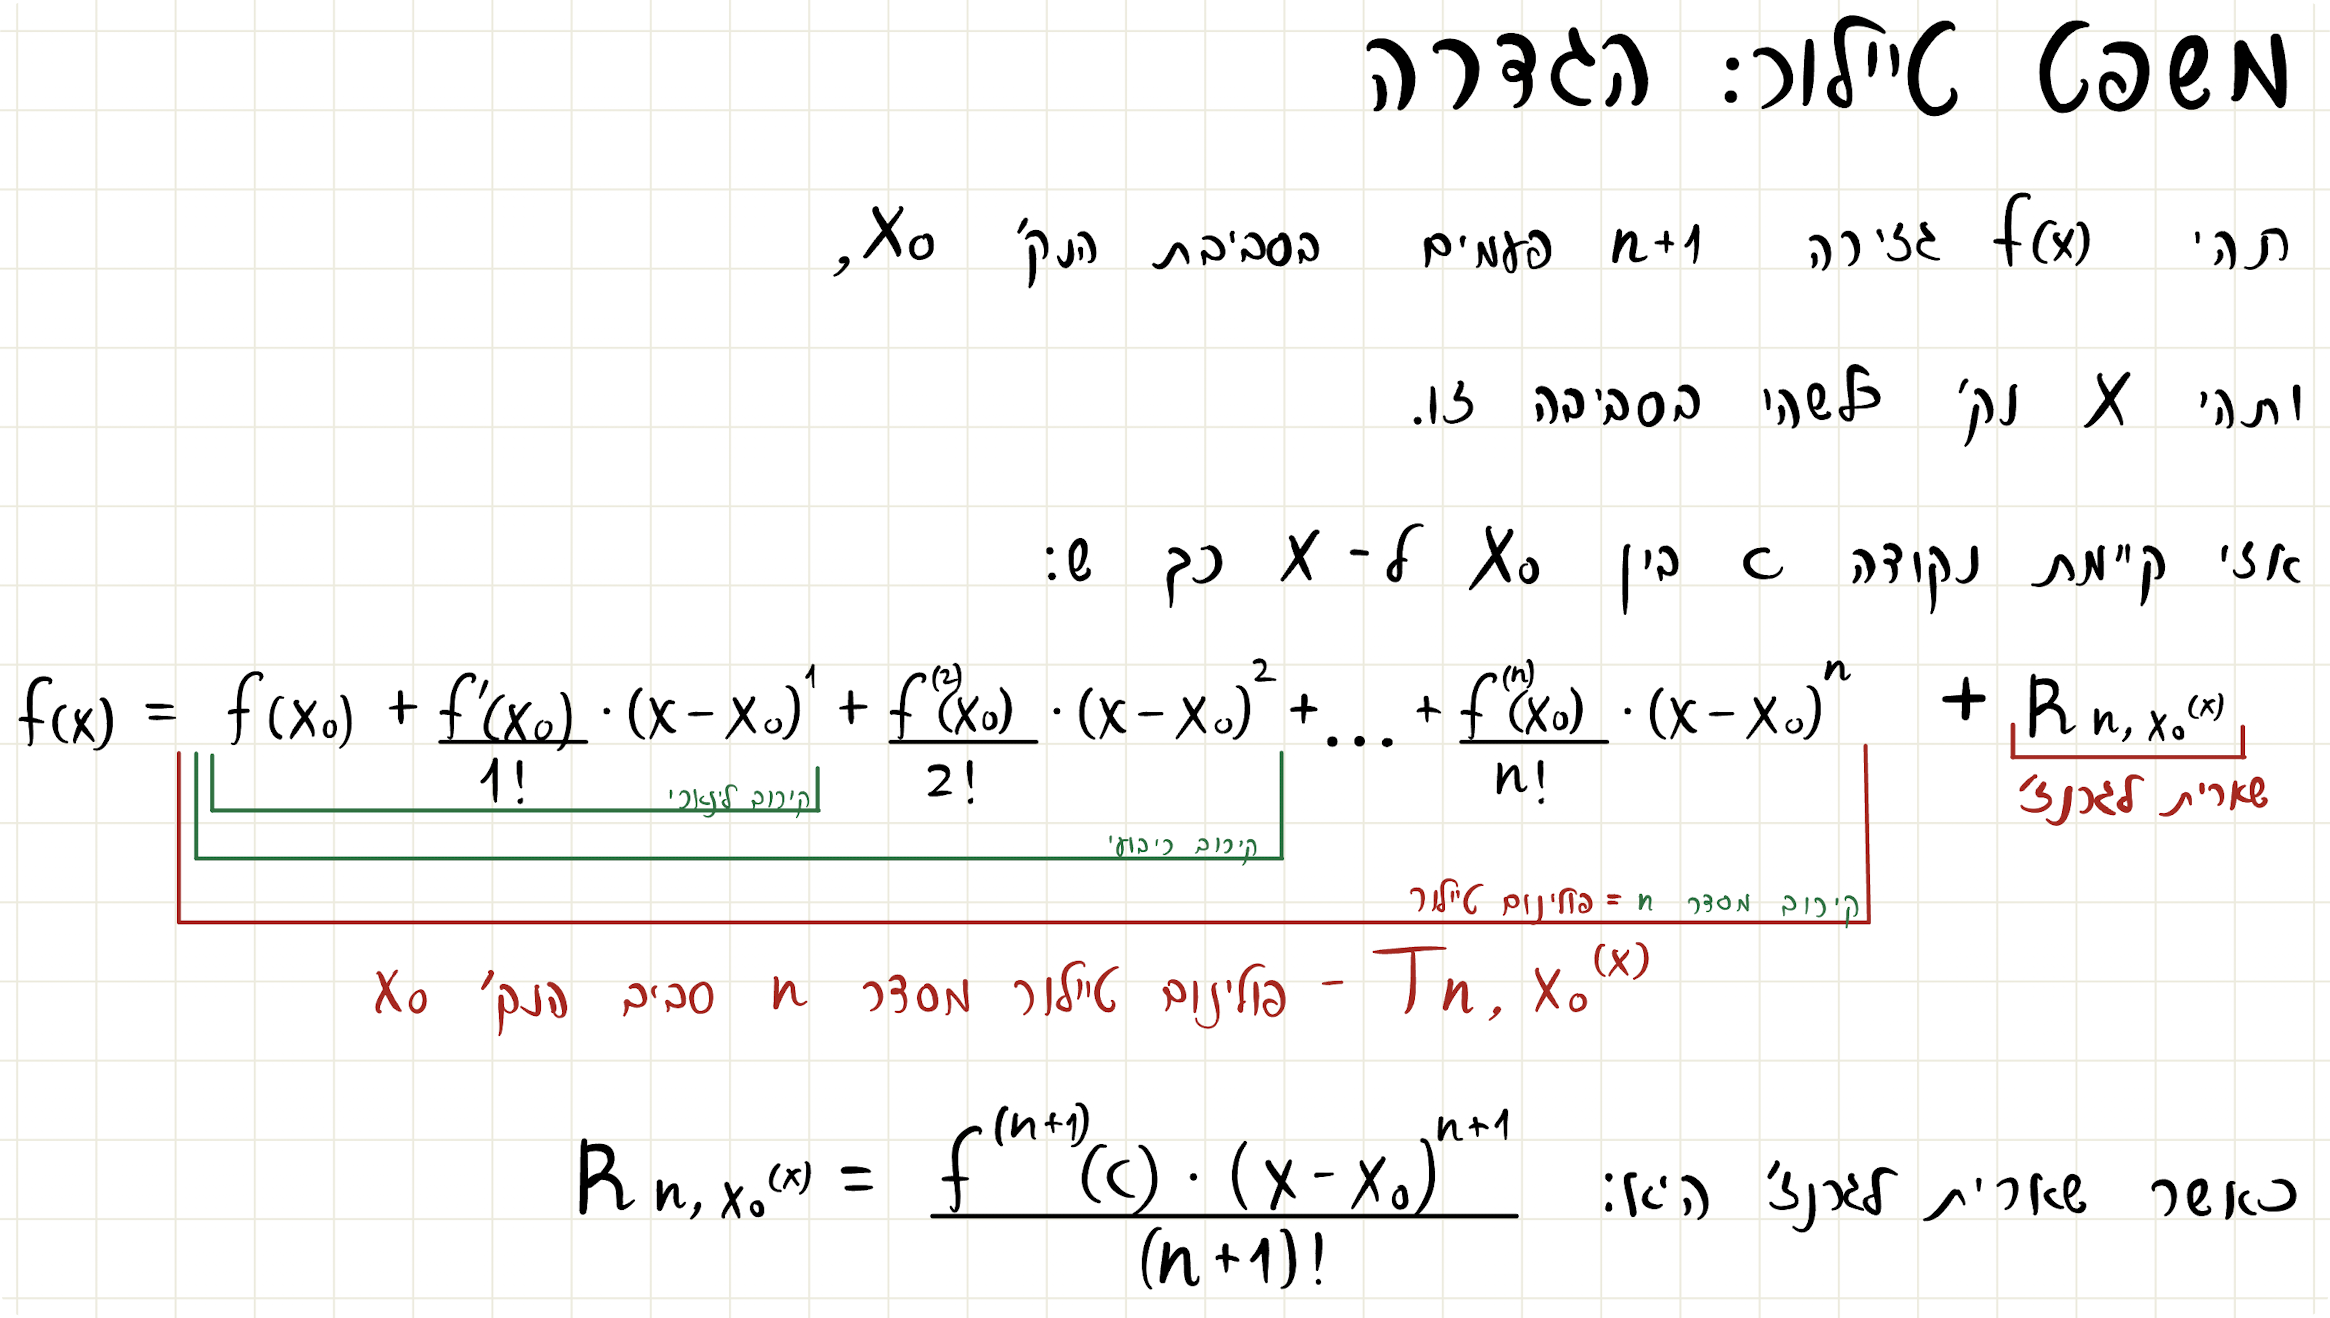 משפט טיילור: הגדרה
תהי f(x) גזירה n+1 פעמים בסביבת הנק' x₀,
ותהי x נק' כלשהי בסביבה זו.
אזי קיימת נקודה c בין x₀ ל-x כך ש:
f(x) = f(x₀) + f'(x₀)/1! · (x-x₀)¹ + f⁽²⁾(x₀)/2! · (x-x₀)² + ... + f⁽ⁿ⁾(x₀)/n! · (x-x₀)ⁿ + R n, x₀ (x)
קירוב לינארי
שארית לגרנז'
קירוב ריבועי
קירוב מסדר n = פולינום טיילור
T n, x₀ (x) - פולינום טיילור מסדר n סביב הנק' x₀
כאשר שארית לגרנז' היא: R n, x₀ (x) = f⁽ⁿ⁺¹⁾(c) · (x-x₀)ⁿ⁺¹ / (n+1)!